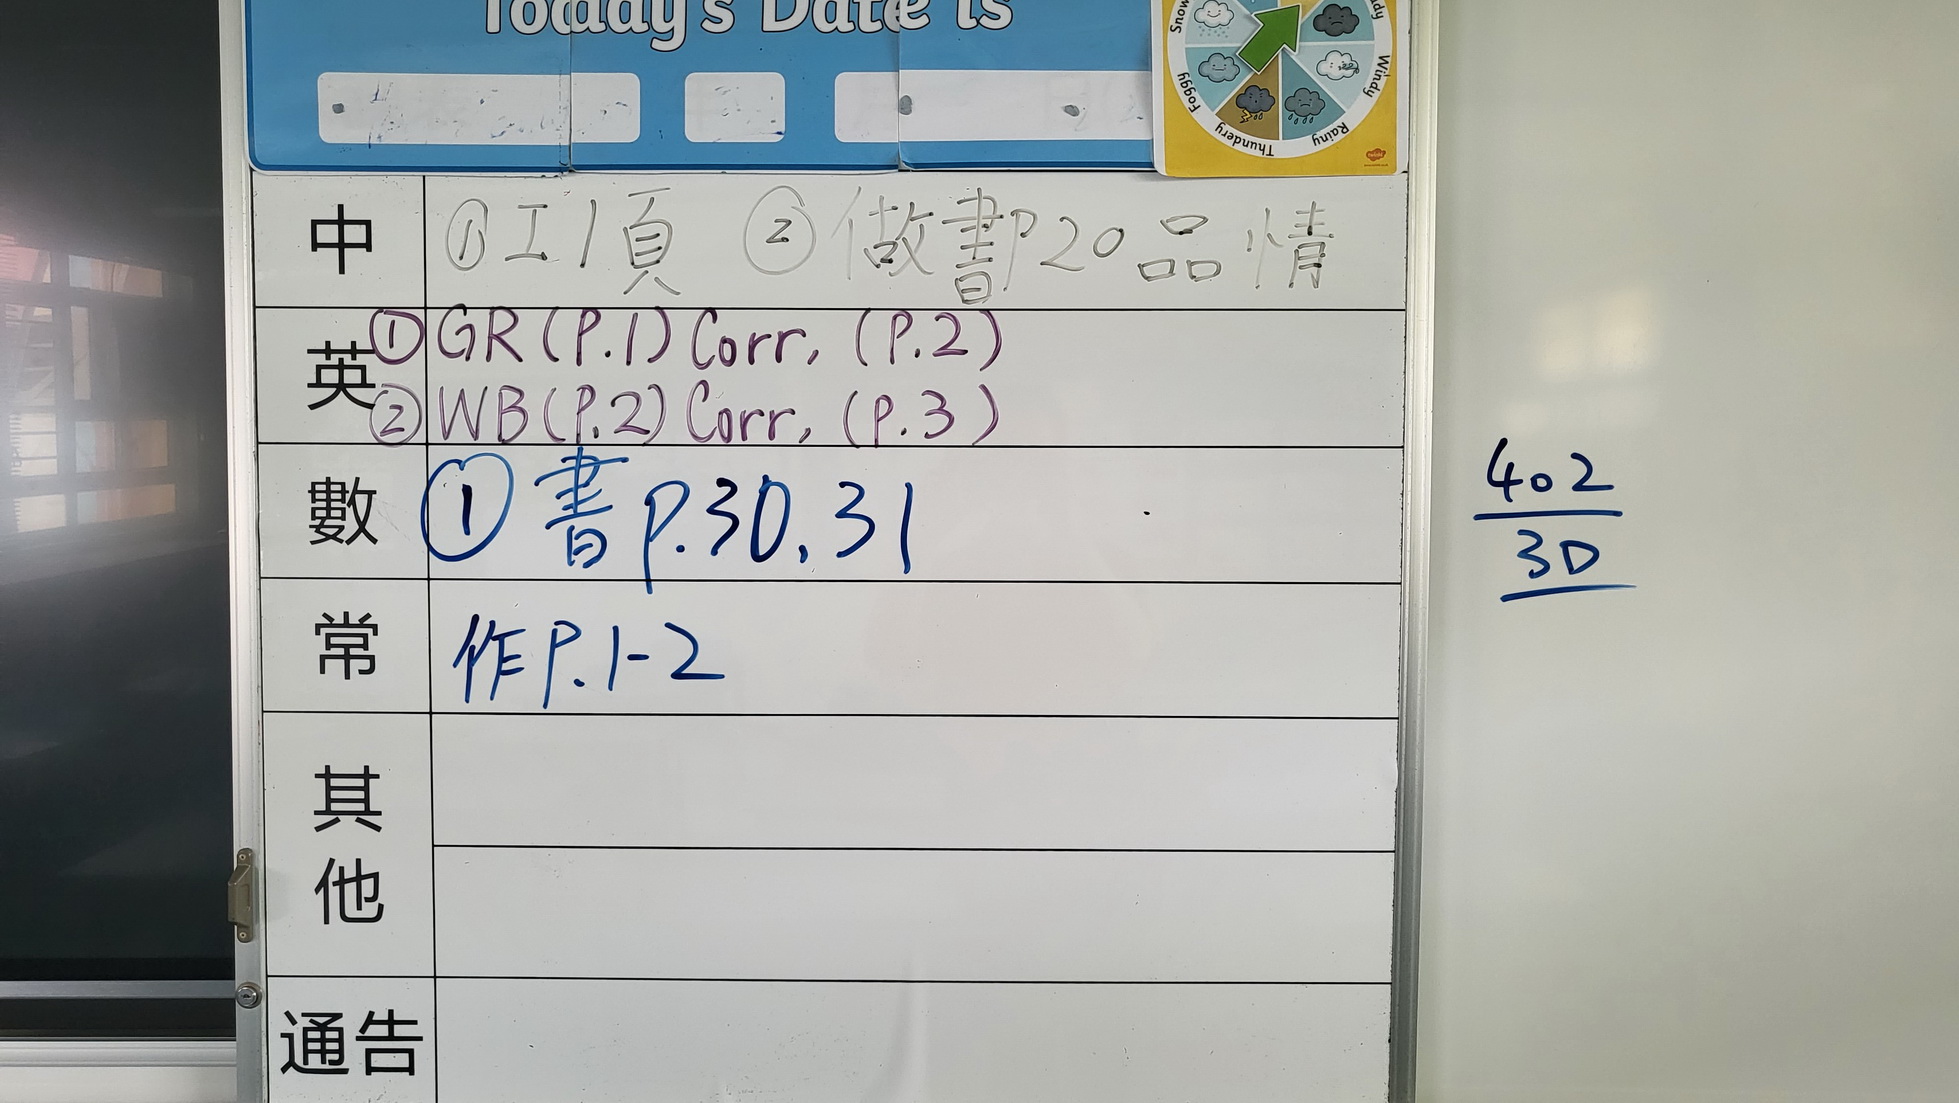 Today's Date is
Snow
Foggy
Thundery
Rainy
Windy
中 ① 工1頁 ② 做書P20品情
英 ① GR (P.1) Corr, (P.2)
② WB (P.2) Corr, (P.3)
數 ① 書 p.30, 31
常 作P.1-2
其他
通告
402
30